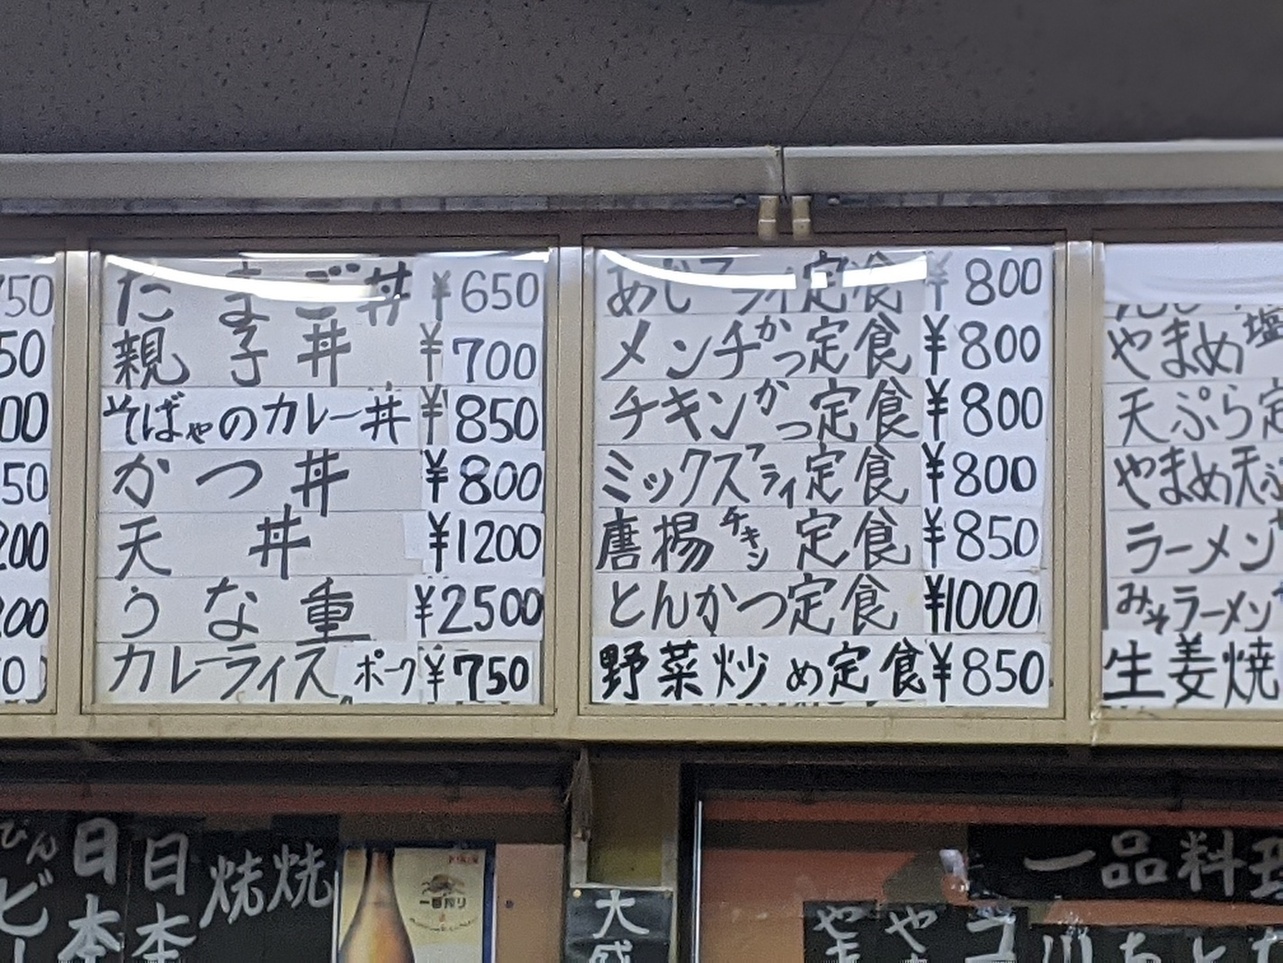 750
50
00
50
200
200
0
たまご丼 ¥650
親子丼 ¥700
そばやのカレー丼 ¥850
かつ丼 ¥800
天丼 ¥1200
うな重 ¥2500
カレーライス ポーク ¥750
あじフライ定食 ¥800
メンチかつ定食 ¥800
チキンかつ定食 ¥800
ミックスフライ定食 ¥800
唐揚チキン定食 ¥850
とんかつ定食 ¥1000
野菜炒め定食 ¥850
やまめ塩
天ぷら定
やまめ天ぷ
ラーメン
みそラーメン
生姜焼
びん
ビー
日本
日本
焼
焼
一番搾り
大盛
一品料理